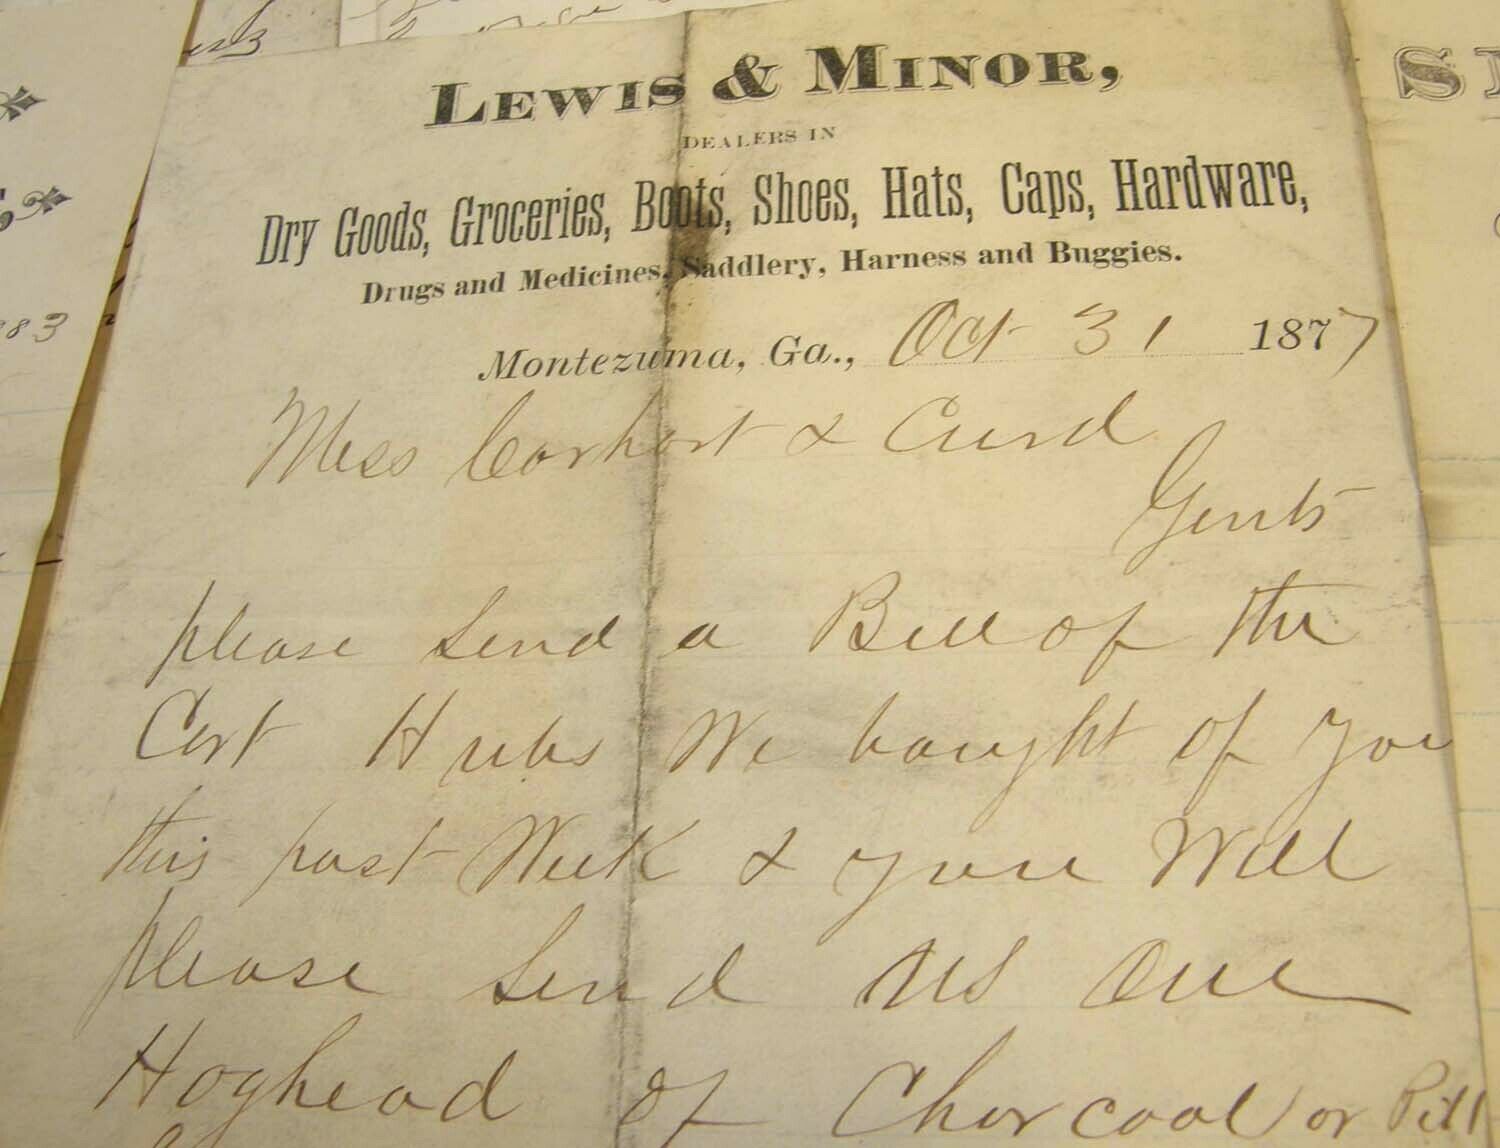 LEWIS & MINOR,
DEALERS IN
Dry Goods, Groceries, Boots, Shoes, Hats, Caps, Hardware,
Drugs and Medicines, Saddlery, Harness and Buggies.
Montezuma, Ga., Oct 31 1877
Mess Carhart & Curd
Gents
please send a Bill of the
Cart Hubs We bought of you
this past Week & you Will
please send us One
Hoghead of Charcoal or
883